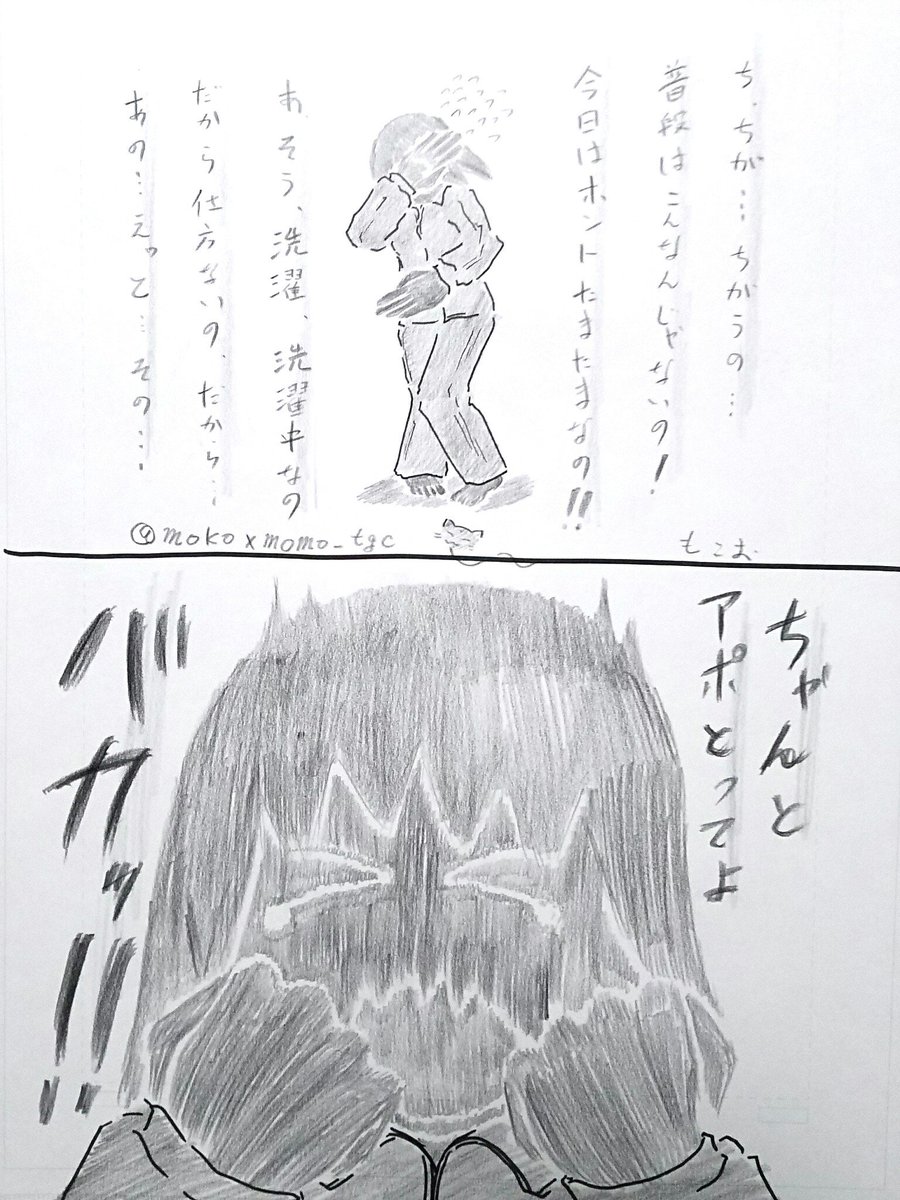 ち、ちが…ちがうの…
普段はこんなんじゃないの!
今日はホントたまたまなの!!
あ、そう、洗濯、洗濯中なの
だから仕方ないの、だから…
あの…えっと…その…
④moko×momo_tgc
もこお
ちゃんと
アポとってよ
バカッ!!